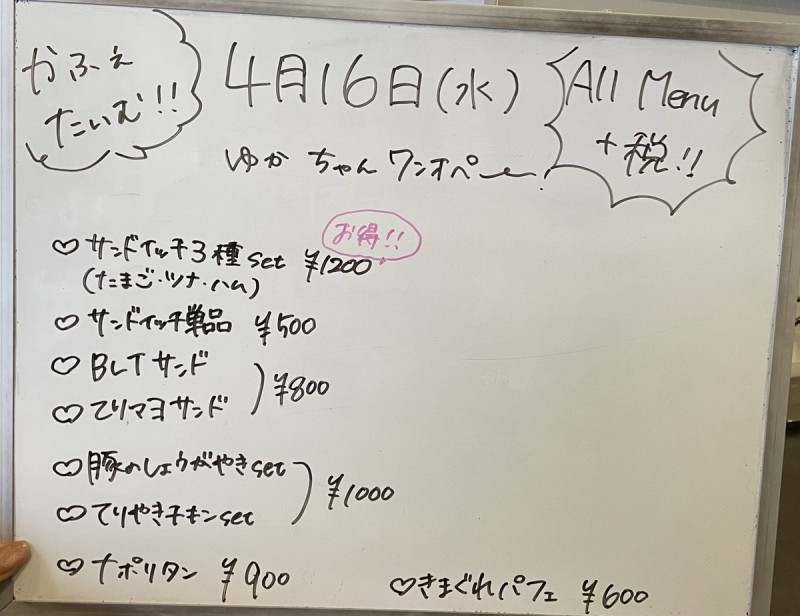 かふぇ
たいむ!!
4月16日(水)
All Menu
+税!!
ゆかちゃんワンオペー!
お得!!
♡サンドイッチ3種set ¥1200
(たまご・ツナ・ハム)
♡サンドイッチ単品 ¥500
♡BLTサンド
♡てりマヨサンド
¥800
♡豚のしょうがやきset
♡てりやきチキンset
¥1000
♡ナポリタン ¥900
♡きまぐれパフェ ¥600